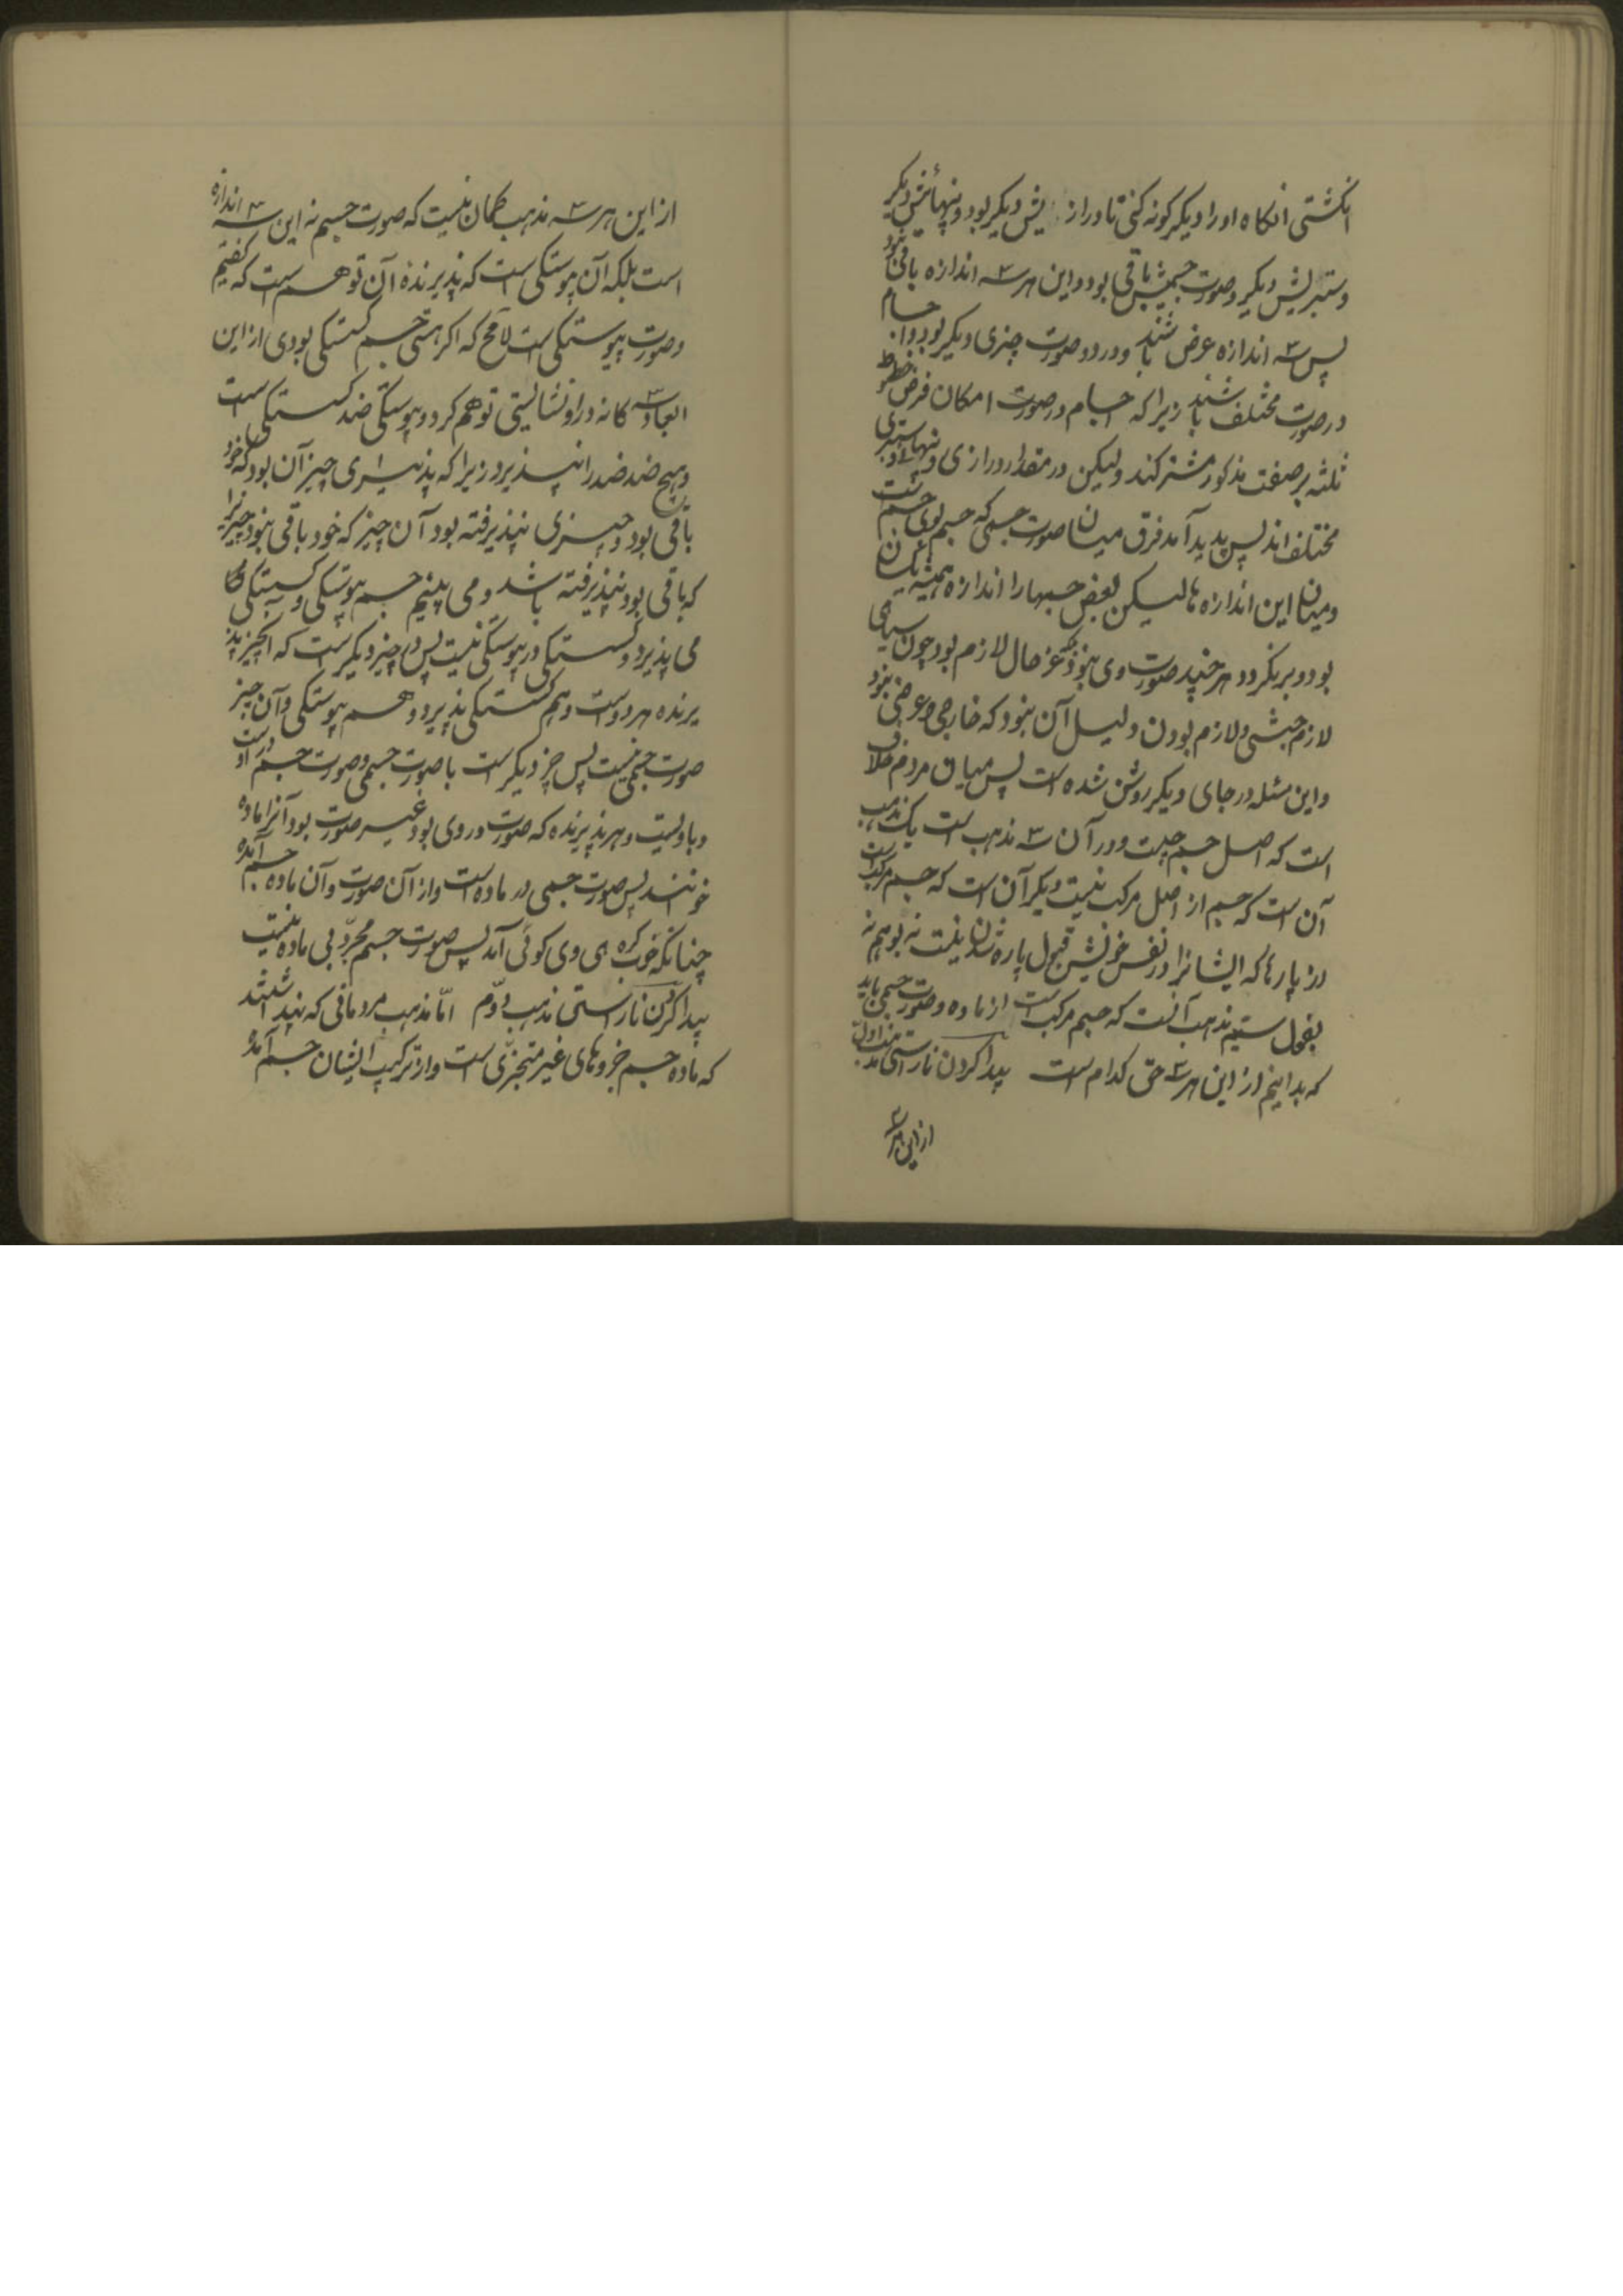 انکشتی انکاه او را دیکر کونه کنی تا درازیش دیکر بود و پهنائیش دیکر
و ستبریش دیکر و صورت جسمیش باقی بود و این هر سه اندازه باقی نبود
پس سه اندازه عرض باشند و در وی صورت چیزی دیکر بود و اجسام
در صورت مختلف باشند زیرا که اجسام در صورت امکان فرض خطوط
ثلثه بر صفت مذکور مشترکند ولیکن در مقدار درازی و پهنا و ستبری
مختلف‌اند پس پدید آمد فرق میان صورت جسمی که جسم بوی جسمست
و میان این اندازه‌ها لیکن بعض جسمها را اندازه همیشه یکسان
بود و برنکردد هر چند صورت وی نبود عرض حال لازم بود چون سیاهی
لازم حبشی و لازم بودن دلیل آن نبود که خارجی و عرضی نبود
و این مسئله در جای دیکر روشن شده است پس میان مردم خلاف
است که اصل جسم چیست و در آن سه مذهب است یک مذهب
آن است که جسم از اصل مرکب نیست دیکر آن است که جسم مرکب است
از پارها که ایشانرا در نفس خویش قبول پاره شدن نیست نه بوهم نه
بفعل سیم مذهب آنست که جسم مرکب است از ماده و صورت جسمی باید
که بدانیم از این هر سه حق کدام است پیدا کردن ناراستی مذهب اول
از این هر سه
از این هر سه مذهب کمان نیست که صورت جسم نه این سه اندازه
است بلکه آن پیوستکی است که پذیرنده آن توهم است که کفتیم
و صورت پیوستکی است لامح که اکر هستی جسم کسستکی بودی از این
ابعاد سه کانه در او نشایستی توهم کرد و پیوستکی ضد کسستکی است
و هیچ ضد ضد را نپذیرد زیرا که پذیرای چیز آن بود که خود
باقی بود و چیزی نپذیرفته بود آن چیز که خود باقی نبود چیزیرا
که باقی بود نپذیرفته باشد و می بینیم جسم پیوستکی و کسستکی را
می پذیرد و کسستکی در پیوستکی نیست پس در چیز دیکر است که آنچیز پذ
یرنده هر دوست و هم کسستکی پذیرد و هم پیوستکی و آن چیز
صورت جسمی نیست پس چیز دیکر است با صورت جسمی و صورت جسم در اوست
و با ویست و هر پذیرنده که صورت در وی بود غیر صورت بود آنرا ماده
خوانند پس صورت جسمی در ماده است و از آن صورت و آن ماده جسم آمده
چنانکه چوب کره‌ی وی کوئی آمد پس صورت جسم مجرد بی ماده نیست
پیدا کردن ناراستی مذهب دوم امّا مذهب مردمانی که پنداشتند
که ماده جسم جزوهای غیر متجزّی است و از ترکیب ایشان جسم آمده